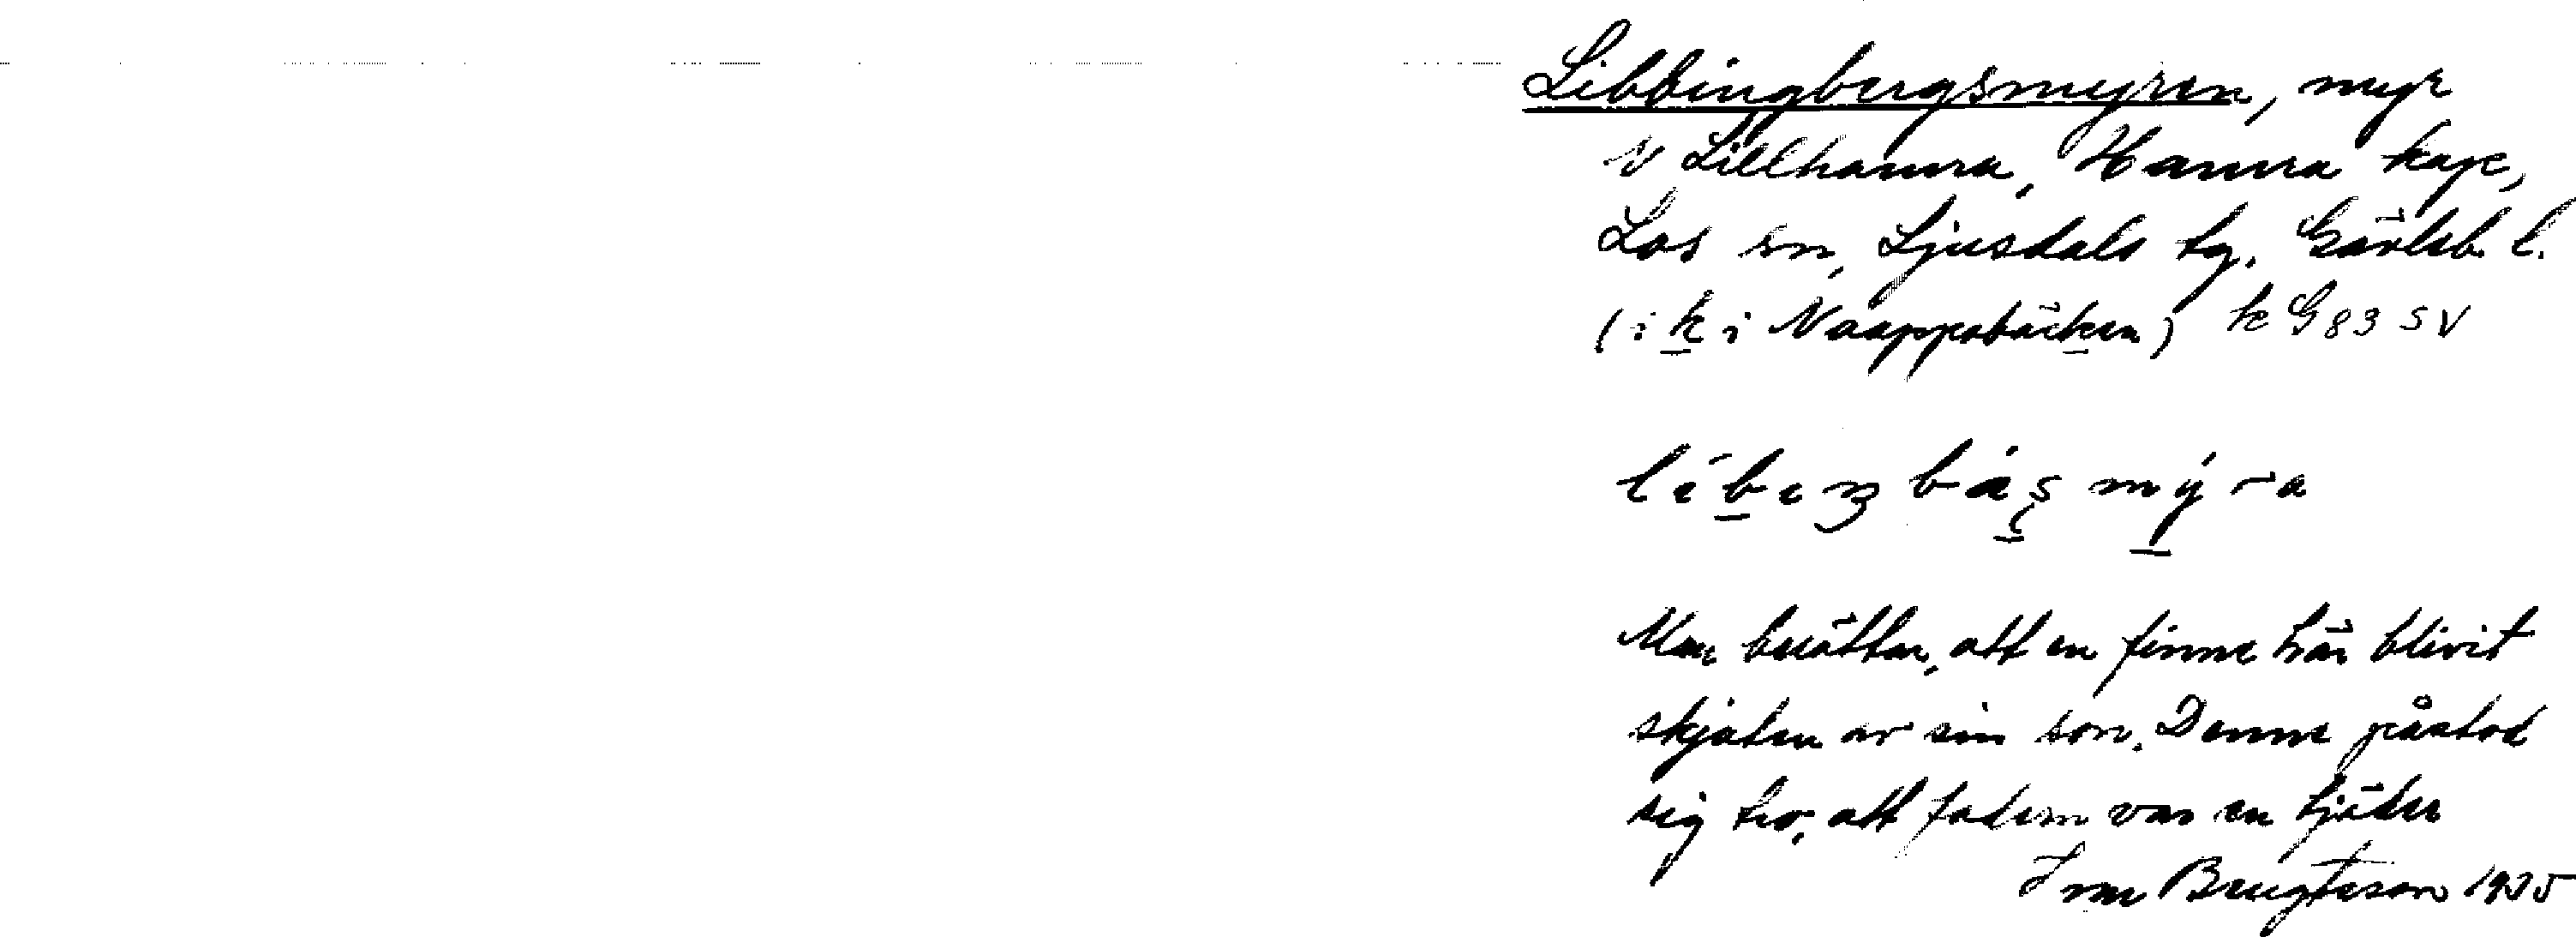 Libbingbergsmyren, myr
V Lillhamra, Hamra kap,
Los sn, Ljusdals tg. Gävleb. l.
(i k i Naappobäcken) k G 83 SV
Man berättar, att en finne här blivit
skjuten av sin son. Denne påstod
sig tro, att fadern var en tjäder
Bengtsson 1935